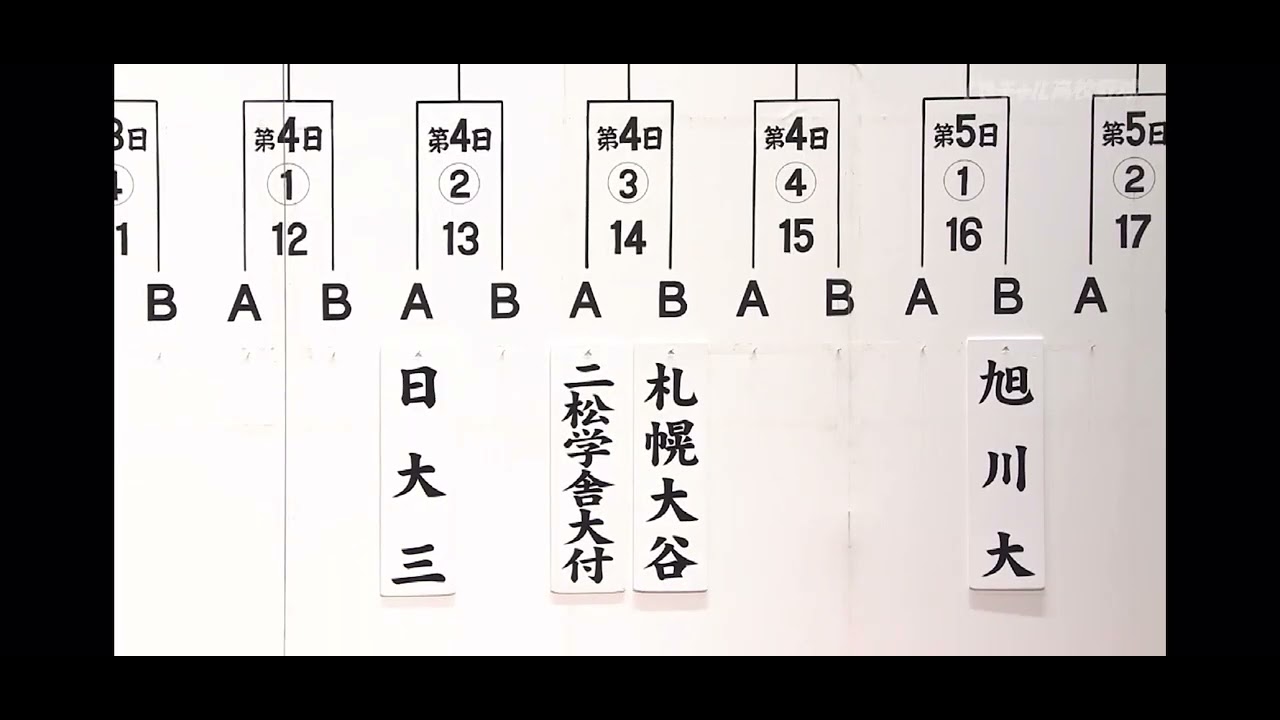 バーチャル高校野球
3日
第4日
第4日
第4日
第4日
第5日
第5日
4
①
②
③
④
①
②
11
12
13
14
15
16
17
B A B A B A B A B A B A
日大三
二松学舎大付
札幌大谷
旭川大